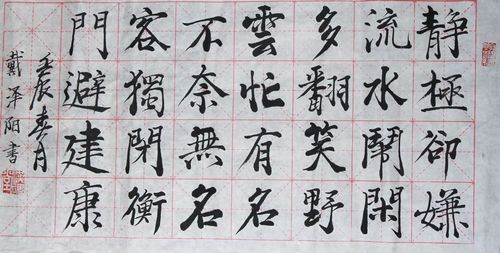 静極卻嫌
流水鬧閑
多翻笑野
雲忙有名
不奈無名
客獨閉衡
門避建康
壬辰春月
戴澤陽書